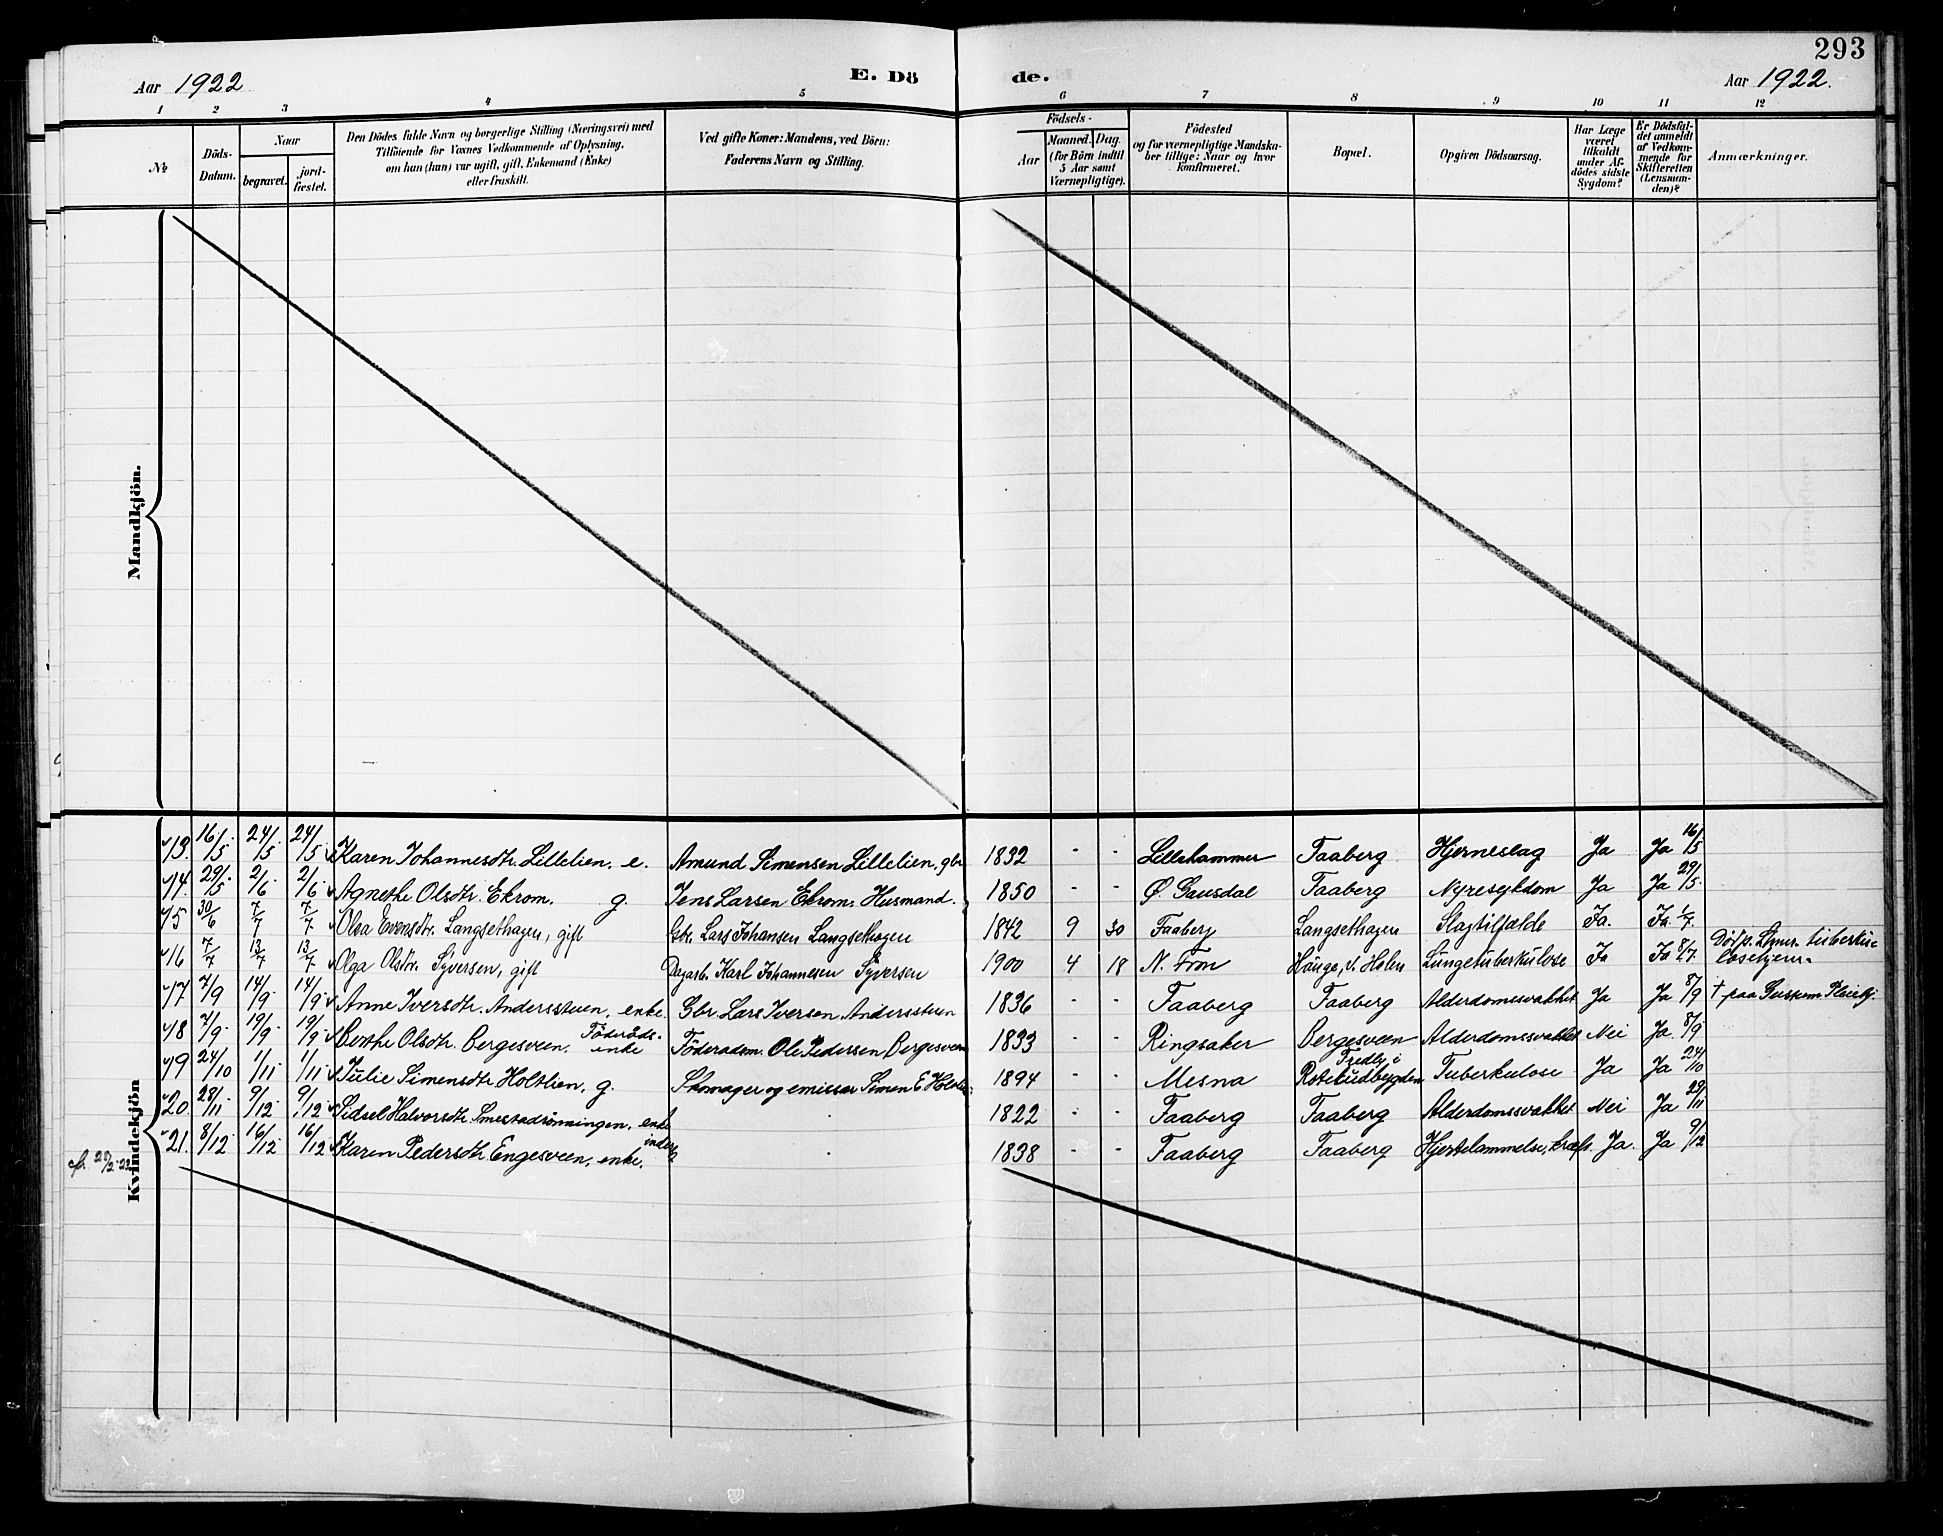 293
Aar 1922 E. Dö de. Aar 1922.
1 2 3 4 5 6 7 8 9 10 11 12
№
Döds-Datum.
Naar
begravet.
jord-fæstet.
Den Dödes fulde Navn og borgerlige Stilling (Næringsvei) med
Tilföiende for Voxnes Vedkommende af Oplysning,
om han (hun) var ugift, gift, Enkemand (Enke)
eller fraskilt.
Ved gifte Koner: Mandens, ved Börn:
Faderens Navn og Stilling.
Födsels-
Aar
Maaned. Dag.
(for Börn indtil
5 Aar samt
Værnepligtige).
Födested
og for værnepligtige Mandska-
ber tillige: Naar og hvor
konfirmeret.
Bopæl.
Opgiven Dödsaarsag.
Har Læge
været
tilkaldt
under Af-
dödes sidste
Sygdom?
Er Dödsfal-
det anmeldt
af Vedkom-
mende for
Skifteretten
(Lensman-
den)?
Anmærkninger.
Mandkjön.
Kvindekjön
13. 16/5 24/5 24/5 Karen Johannesdtr. Lillelien. e. Amund Simensen Lillelien, gbr 1832 - - Lillehammer Faaberg Hjerneslag Ja Ja 16/5
14. 29/5 2/6 2/6 Agnethe Olsdtr. Ekrom. g. Jens Larsen Ekrom. Husmand. 1850 - - Ø. Gausdal Faaberg Nyresykdom Ja Ja 29/5
15 30/6 7/7 7/7 Olea Evensdtr. Langsethagen, gift Gbr. Lars Johansen Langsethagen 1842 9 30 Faaberg Langsethagen Slagtilfælde Ja. Ja. 1/7.
16 7/7 13/7 13/7 Olga Olsdtr. Syversen, gift Dagarb. Karl Johannesen Syversen 1900 4 18 N. Fron Hauge, v. Holen Lungetuberkulose Ja Ja 8/7. Död p. Lhmr. tuberku-
losehjem.
17 7/9 14/9 14/9 Anne Iversdtr. Andersstuen, enke Gbr. Lars Iversen Andersstuen 1836 - - Faaberg Faaberg Alderdomssvakhet Ja Ja 8/9 † paa Pleiehj.
18 7/9 19/9 19/9 Berthe Olsdtr. Bergesveen. Föderåds-
enke Föderadsm. Ole Pedersen Bergesveen 1833 - - Ringsaker Bergesveen Alderdomssvakhet Nei Ja 8/9
19 24/10 1/11 1/11 Julie Simensdtr Holtlien, g. Skomager og emissær Simen E Holtlien 1894 - - Mesna Fredly i
Roterudbygden Tuberkulose Ja Ja 24/10
20. 28/11 9/12 9/12 Sidsel Halvorsdtr. Smestadrønningen. enke 1822 - - Faaberg Faaberg Alderdomssvakhet Nei Ja 29/11
21. 8/12 16/12 16/12 Karen Pedersdtr. Engesveen, enke, inderst 1838 - - Faaberg Faaberg Hjertelammelse, kræft. Ja. Ja 9/12